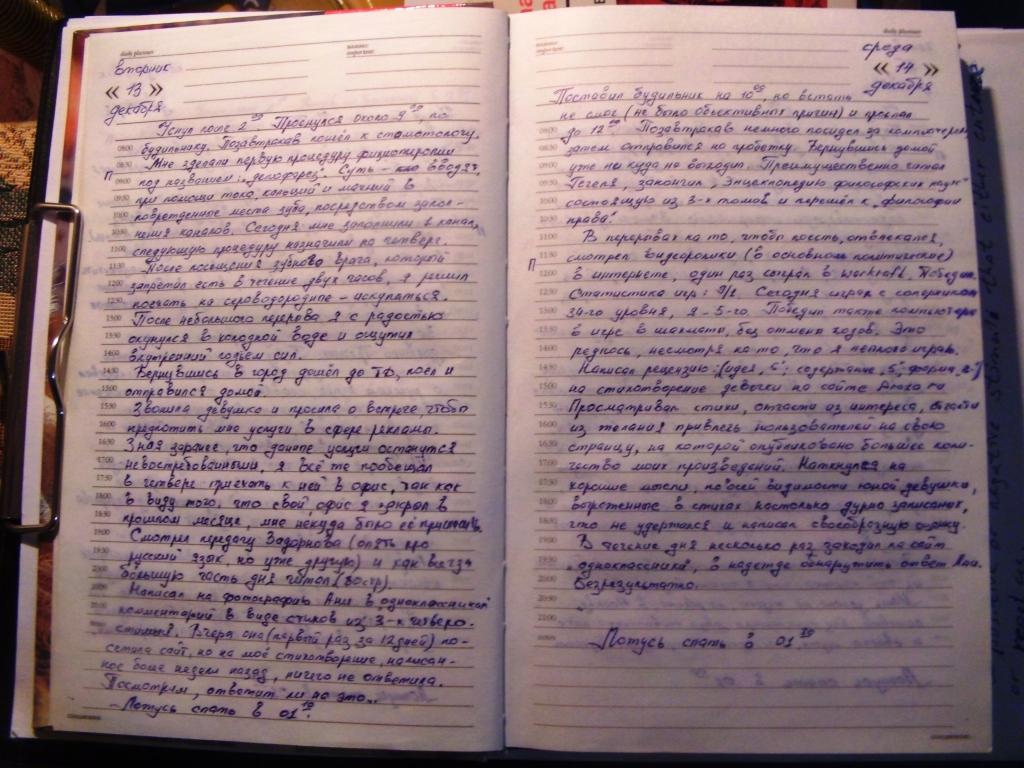 daily planner
вторник
« 13 »
декабря
Уснул после 2 00 Проснулся около 9 00, по
будильнику. Позавтракав пошёл к стоматологу.
Мне сделали первую процедуру физиотерапии
под названием: „депофарез". Суть вводят,
П
при помощи тока, кальций и магний в
повреждённые места зуба, посредством запол-
нения каналов. Сегодня мне заполнили канал,
следующую процедуру назначили на четверг.
После посещения зубного врача, который
запретил есть в течение двух часов, я решил
поехать на сероводородние – искупаться.
После небольшого перерыва я с радостью
окунулся в холодной воде и ощутил
внутренний подъём сил.
Вернувшись в город дошёл до ТД, поел и
отправился домой.
Звонила девушка и просила о встрече чтобы
предложить мне услуги в сфере рекламы.
Зная заранее, что данные услуги останутся
невостребованными, я всё же пообещал
в четверг приехать к ней в офис, так как
в виду того, что свой офис я закрыл в
прошлом месяце, мне некуда было её пригласить.
Смотрел передачу Задорнова (опять про
русский язык, но уже другую) и как всегда
большую часть дня читал
Написал на фотографию Ани в одноклассниках
комментарий в виде стихов из 3-х четверо-
стиший. Вчера она (первый раз за 12 дней) по-
сетила сайт, но на моё стихотворение, написан-
ное более недели назад, ничего не ответила.
Посмотрим, ответит ли на это...
– Ложусь спать в 01 10.
daily planner
среда
« 14 »
декабря
Поставил будильник на 10 00, но встать
не смог (не было объективных причин) и проспал
до 12 00 Позавтракав немного посидел за компьютером
затем отправился на пробежку. Вернувшись домой
уже никуда не выходил. Преимущественно читал
Гегеля, закончил „Энциклопедию философских наук"
состоящую из 3-х томов и перешёл к „Философии
права".
В перерывах на то, чтобы поесть, отвлекался,
смотрел видеоролики (в основном политические)
П
в интернете, один раз сыграл в Warkraft. Победил.
Статистика игр: 9/1. Сегодня играл с соперником
34-го уровня, я - 5-го. Победил также компьютер
в игре в шахматы, без отмена ходов. Это
редкость, несмотря на то, что я неплохо играю.
Написал рецензию: (идея „5"; содержание „5"; форма „2")
на стихотворение девочки на сайте
Просматривал стихи, отчасти из интереса, отчасти
из желания привлечь пользователей на свою
страницу, на которой опубликовано большее коли-
чество моих произведений. Наткнулся на
хорошие мысли, по всей видимости юной девушки,
выраженные в стихах настолько дурно записанных,
что не удержался и написал своеобразную оценку.
В течение дня несколько раз заходил на сайт
„одноклассники", в надежде обнаружить ответ Ани.
Безрезультатно.
– Ложусь спать в 01 10